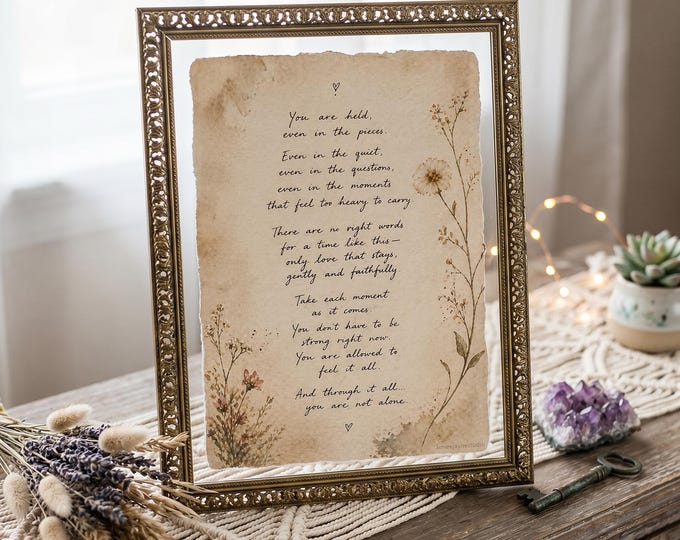 You are held,
even in the pieces.
Even in the quiet,
even in the questions,
even in the moments
that feel too heavy to carry
There are no right words
for a time like this—
only love that stays,
gently and faithfully.
Take each moment
as it comes.
You don't have to be
strong right now.
You are allowed to
feel it all.
And through it all...
you are not alone.